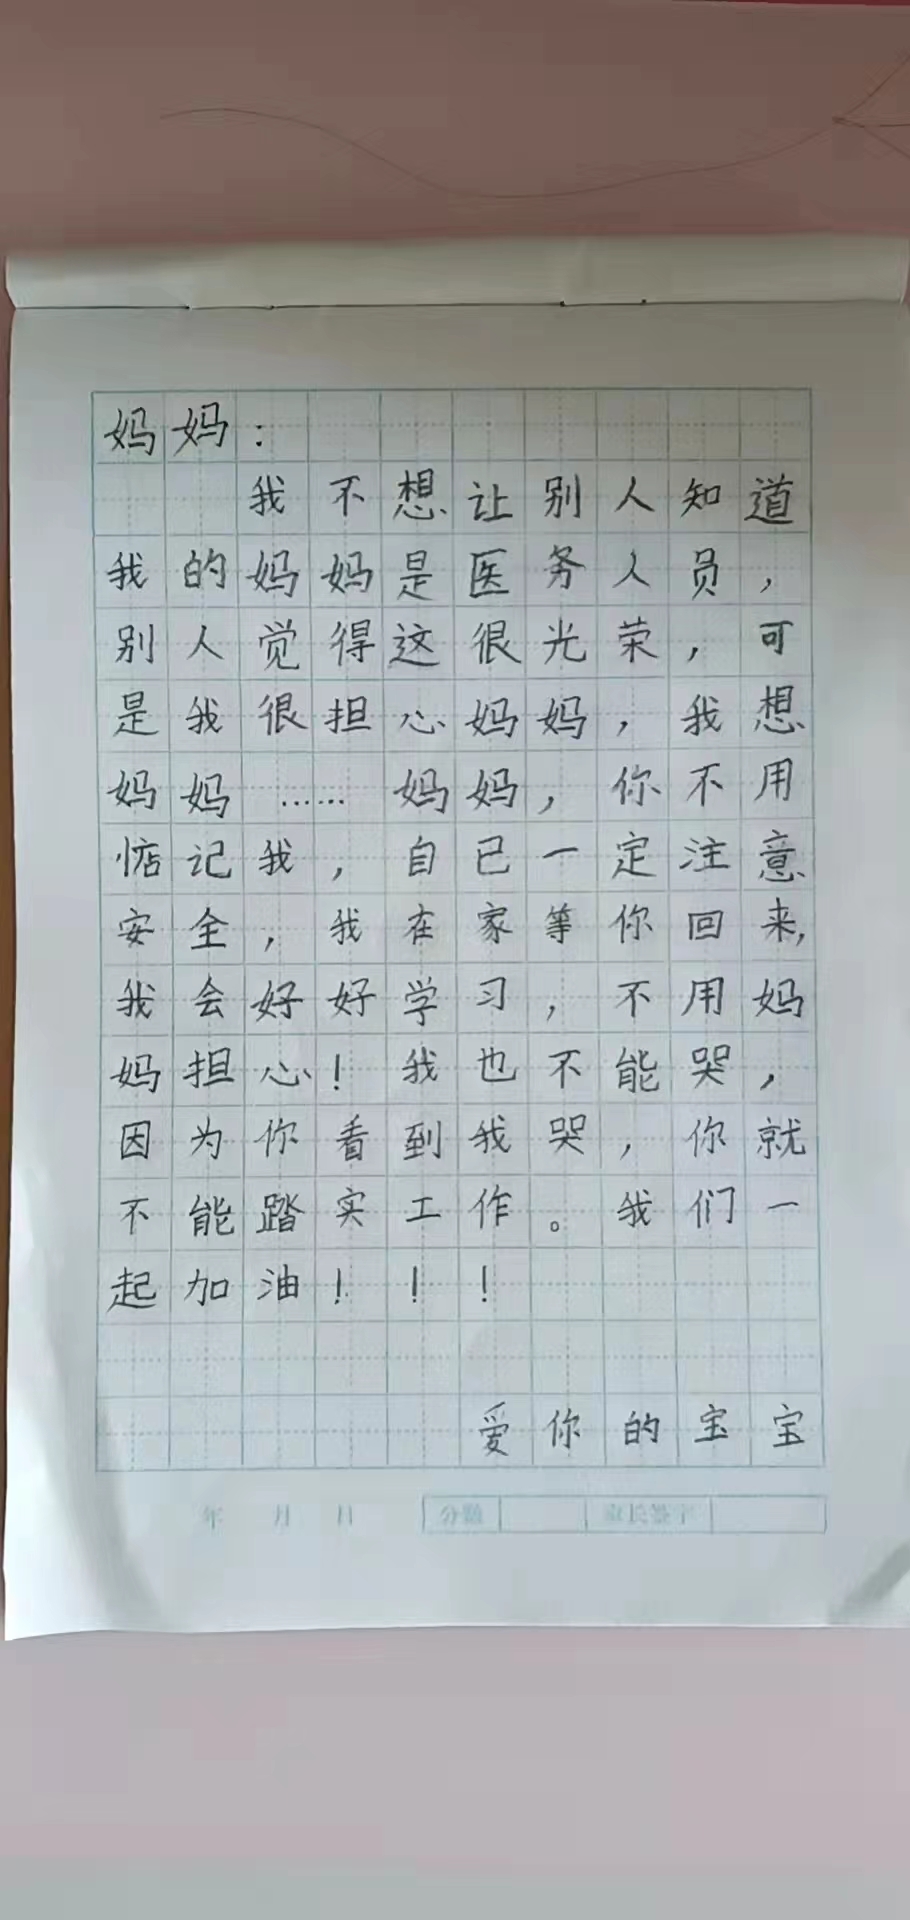 妈妈：
我不想让别人知道
我的妈妈是医务人员，
别人觉得这很光荣，可
是我很担心妈妈，我想
妈妈……妈妈，你不用
惦记我，自己一定注意
安全，我在家等你回来，
我会好好学习，不用妈
妈担心！我也不能哭，
因为你看到我哭，你就
不能踏实工作。我们一
起加油！！！
爱你的宝宝
年 月 日 分数 家长签字